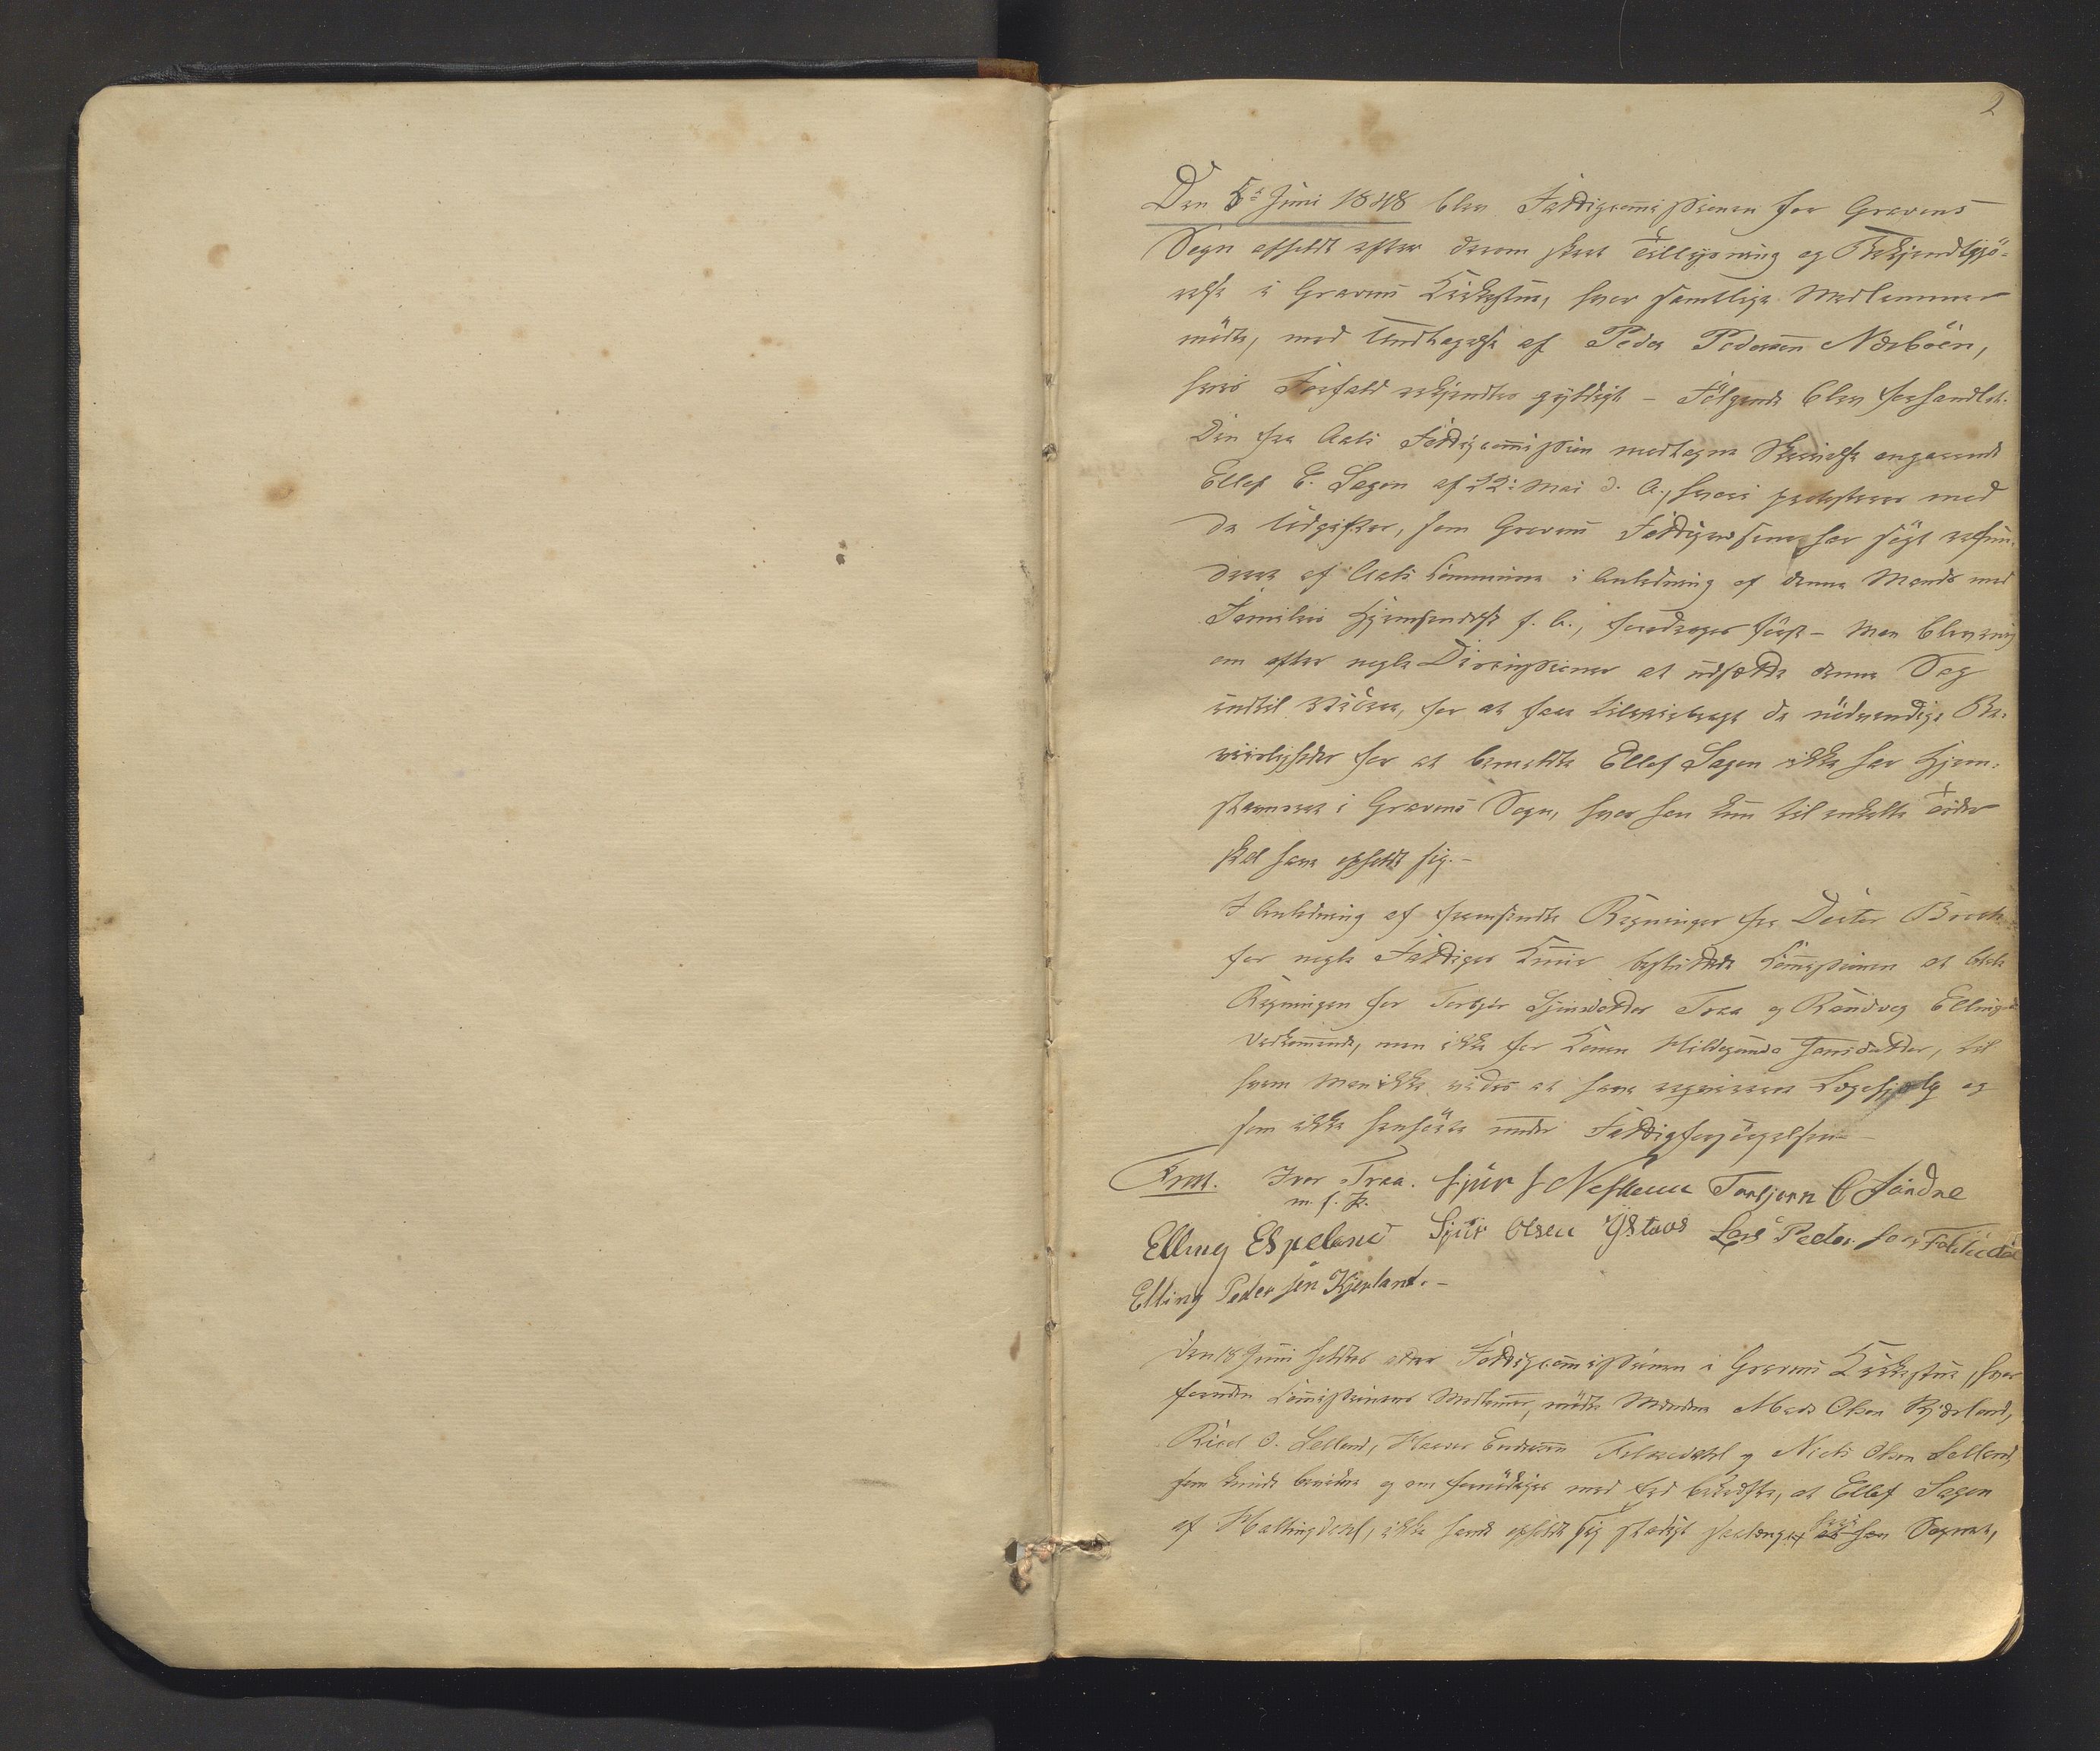 2
Den 5te Juni 1848 blev Fattigcommissionen for Gravens
Sogn afholdt efter derom skeet Tillysning og Bekjendtgjö-
relse i Gravens Kirkestue, hvor samtlige Medlemmer
mödte, med Undtagelse af Peder Pedersen Næsböen,
hvis Forfald erkjendtes gyldigt – Fölgende blev forhandlet.
Den fra Aals Fattigcommission modtagne Skrivelse angaaende
Ellef E. Sagen af 22: Mai d. A., hvori protesteres mod
de Udgifter, som Gravens Fattigvæsen har sögt refun-
deret af Aals Commune i Anledning af denne Mands med
Families Hjemsendelse f. A., foredroges först – Man blev enig
om efter nogle Discussioner at udsætte denne Sag
indtil videre, for at faae tilveiebragt de nödvendige Be-
viisligheder for at bemeldte Ellef Sagen ikke har Hjem-
stavnsret i Gravens Sogn, hvor han kun til enkelte Tider
skal have opholdt sig. –
I Anledning af fremsendte Regninger fra Doctor Borch
for nogle Fattiges Cuur besluttede Commissionen at betale
Regningen for Torbjör Sjursdatter Traa og Randveg Ellingsd.
Vedkommende, men ikke for Konen Hildegunda Jonsdatter, til
hvem Man ikke vides at have requireret Lægehjælp og
som ikke henhörer under Fattigforsörgelsen –
Iver Traa. Sjur S Nesheim Torbjørn O Søndre
m. f. P.
Elling Espeland Sjur Olsen Ystaas Lars Peder sen
Elling Peder sen Kjerland. –
Den 18 Juni holdtes atter Fattigcommissionen i Gravens Kirkestue, hvor
foruden Commissionens Medlemmer, mödte Mændene Mads Olsen Kjærland,
O. Lelland, Haaver Endresen Folkedahl og Niels Olsen Lelland,
som kunde bevidne og om fornödiges med Eed bekræfte, at Ellef Sagen
af Hallingdahl, ikke havde opholdt sig stadigt saalænge her i Sognet,